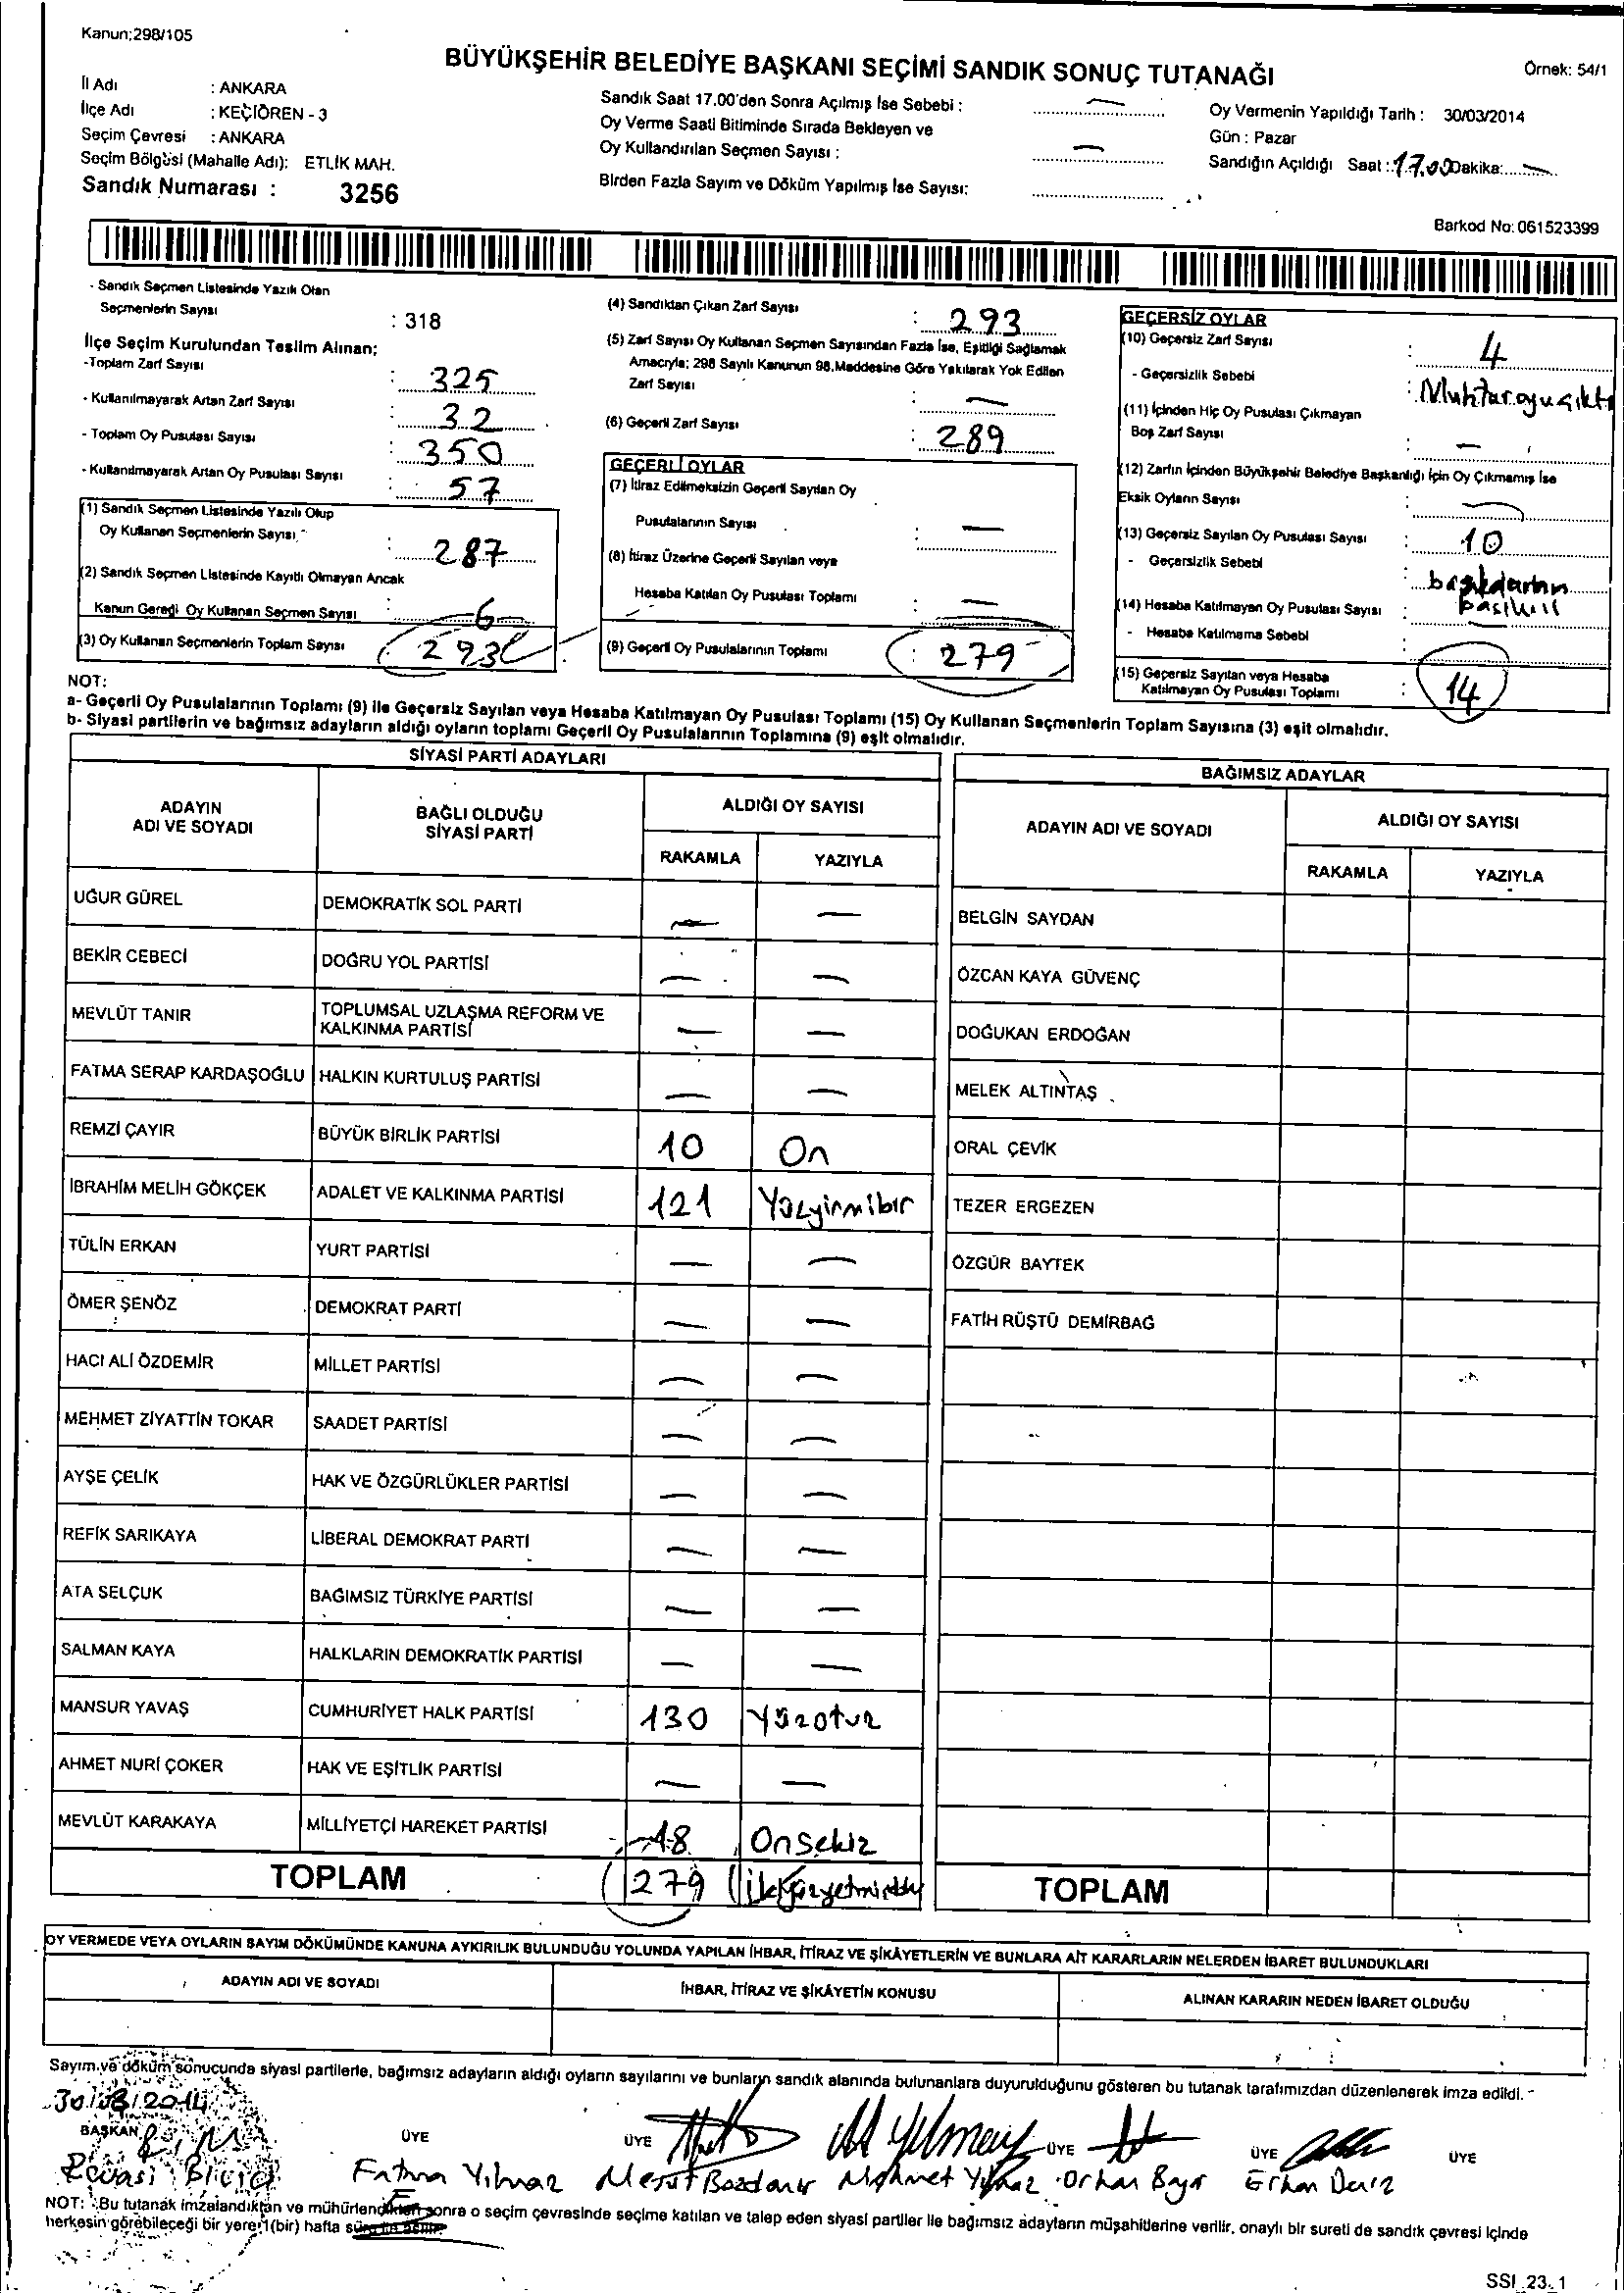 Kanun;298/105
BÜYÜKŞEHİR BELEDİYE BAŞKANI SEÇİMİ SANDIK SONUÇ TUTANAĞI
Örnek: 54/1
İl Adı : ANKARA
İlçe Adı : KEÇİÖREN - 3
Seçim Çevresi : ANKARA
Seçim Bölgesi (Mahalle Adı): ETLİK MAH.
Sandık Numarası : 3256
Sandık Saat 17.00'den Sonra Açılmış İse Sebebi : —
Oy Verme Saati Bitiminde Sırada Bekleyen ve
Oy Kullandırılan Seçmen Sayısı : —
Birden Fazla Sayım ve Döküm Yapılmış İse Sayısı:
Oy Vermenin Yapıldığı Tarih : 30/03/2014
Gün : Pazar
Sandığın Açıldığı Saat : 17.00 Dakika: —
Barkod No: 061523399
- Sandık Seçmen Listesinde Yazılı Olan
Seçmenlerin Sayısı : 318
İlçe Seçim Kurulundan Teslim Alınan;
-Toplam Zarf Sayısı : 325
- Kullanılmayarak Artan Zarf Sayısı : 32
- Toplam Oy Pusulası Sayısı : 350
- Kullanılmayarak Artan Oy Pusulası Sayısı : 57
(1) Sandık Seçmen Listesinde Yazılı Olup
Oy Kullanan Seçmenlerin Sayısı : 287
(2) Sandık Seçmen Listesinde Kayıtlı Olmayan Ancak
Kanun Gereği Oy Kullanan Seçmen Sayısı : 6
(3) Oy Kullanan Seçmenlerin Toplam Sayısı : 293
(4) Sandıktan Çıkan Zarf Sayısı : 293
(5) Zarf Sayısı Oy Kullanan Seçmen Sayısından Fazla İse, Eşitliği Sağlamak
Amacıyla; 298 Sayılı Kanunun 98.Maddesine Göre Yakılarak Yok Edilen
Zarf Sayısı : —
(6) Geçerli Zarf Sayısı : 289
GEÇERLİ OYLAR
(7) İtiraz Edilmeksizin Geçerli Sayılan Oy
Pusulalarının Sayısı : —
(8) İtiraz Üzerine Geçerli Sayılan veya
Hesaba Katılan Oy Pusulası Toplamı : —
(9) Geçerli Oy Pusulalarının Toplamı : 279
GEÇERSİZ OYLAR
(10) Geçersiz Zarf Sayısı : 4
- Geçersizlik Sebebi : Muhtar oyu çıktı
(11) İçinden Hiç Oy Pusulası Çıkmayan
Boş Zarf Sayısı : —
(12) Zarfın İçinden Büyükşehir Belediye Başkanlığı İçin Oy Çıkmamış İse
Eksik Oyların Sayısı : —
(13) Geçersiz Sayılan Oy Pusulası Sayısı : 10
- Geçersizlik Sebebi :
(14) Hesaba Katılmayan Oy Pusulası Sayısı :
- Hesaba Katılmama Sebebi :
(15) Geçersiz Sayılan veya Hesaba
Katılmayan Oy Pusulası Toplamı : 14
NOT:
a- Geçerli Oy Pusulalarının Toplamı (9) ile Geçersiz Sayılan veya Hesaba Katılmayan Oy Pusulası Toplamı (15) Oy Kullanan Seçmenlerin Toplam Sayısına (3) eşit olmalıdır.
b- Siyasi partilerin ve bağımsız adayların aldığı oyların toplamı Geçerli Oy Pusulalarının Toplamına (9) eşit olmalıdır.
SİYASİ PARTİ ADAYLARI
ADAYIN ADI VE SOYADI
BAĞLI OLDUĞU SİYASİ PARTİ
ALDIĞI OY SAYISI
RAKAMLA YAZIYLA
UĞUR GÜREL DEMOKRATİK SOL PARTİ — —
BEKİR CEBECİ DOĞRU YOL PARTİSİ — —
MEVLÜT TANIR TOPLUMSAL UZLAŞMA REFORM VE KALKINMA PARTİSİ — —
FATMA SERAP KARDAŞOĞLU HALKIN KURTULUŞ PARTİSİ — —
REMZİ ÇAYIR BÜYÜK BİRLİK PARTİSİ 10 On
İBRAHİM MELİH GÖKÇEK ADALET VE KALKINMA PARTİSİ 121 Yüzyirmibir
TÜLİN ERKAN YURT PARTİSİ — —
ÖMER ŞENÖZ DEMOKRAT PARTİ — —
HACI ALİ ÖZDEMİR MİLLET PARTİSİ — —
MEHMET ZİYATTİN TOKAR SAADET PARTİSİ — —
AYŞE ÇELİK HAK VE ÖZGÜRLÜKLER PARTİSİ — —
REFİK SARIKAYA LİBERAL DEMOKRAT PARTİ — —
ATA SELÇUK BAĞIMSIZ TÜRKİYE PARTİSİ — —
SALMAN KAYA HALKLARIN DEMOKRATİK PARTİSİ — —
MANSUR YAVAŞ CUMHURİYET HALK PARTİSİ 130 Yüzotuz
AHMET NURİ ÇOKER HAK VE EŞİTLİK PARTİSİ — —
MEVLÜT KARAKAYA MİLLİYETÇİ HAREKET PARTİSİ 18 Onsekiz
TOPLAM 279
BAĞIMSIZ ADAYLAR
ADAYIN ADI VE SOYADI
ALDIĞI OY SAYISI
RAKAMLA YAZIYLA
BELGİN SAYDAN
ÖZCAN KAYA GÜVENÇ
DOĞUKAN ERDOĞAN
MELEK ALTINTAŞ
ORAL ÇEVİK
TEZER ERGEZEN
ÖZGÜR BAYTEK
FATİH RÜŞTÜ DEMİRBAĞ
TOPLAM
OY VERMEDE VEYA OYLARIN SAYIM DÖKÜMÜNDE KANUNA AYKIRILIK BULUNDUĞU YOLUNDA YAPILAN İHBAR, İTİRAZ VE ŞİKÂYETLERİN VE BUNLARA AİT KARARLARIN NELERDEN İBARET BULUNDUKLARI
ADAYIN ADI VE SOYADI
İHBAR, İTİRAZ VE ŞİKÂYETİN KONUSU
ALINAN KARARIN NEDEN İBARET OLDUĞU
Sayım ve döküm sonucunda siyasi partilerle, bağımsız adayların aldığı oyların sayılarını ve bunların sandık alanında bulunanlara duyurulduğunu gösteren bu tutanak tarafımızdan düzenlenerek imza edildi.
30/03/2014
BAŞKAN ÜYE ÜYE ÜYE ÜYE ÜYE
Fatma Yılmaz Mesut Bozdanır Mehmet Yılmaz Orhan Erhan Deniz
NOT: Bu tutanak imzalandıktan ve mühürlendikten sonra o seçim çevresinde seçime katılan ve talep eden siyasi partiler ile bağımsız adayların müşahitlerine verilir, onaylı bir sureti de sandık çevresi içinde
herkesin görebileceği bir yere 1(bir) hafta süre ile asılır.
SSI_23_1